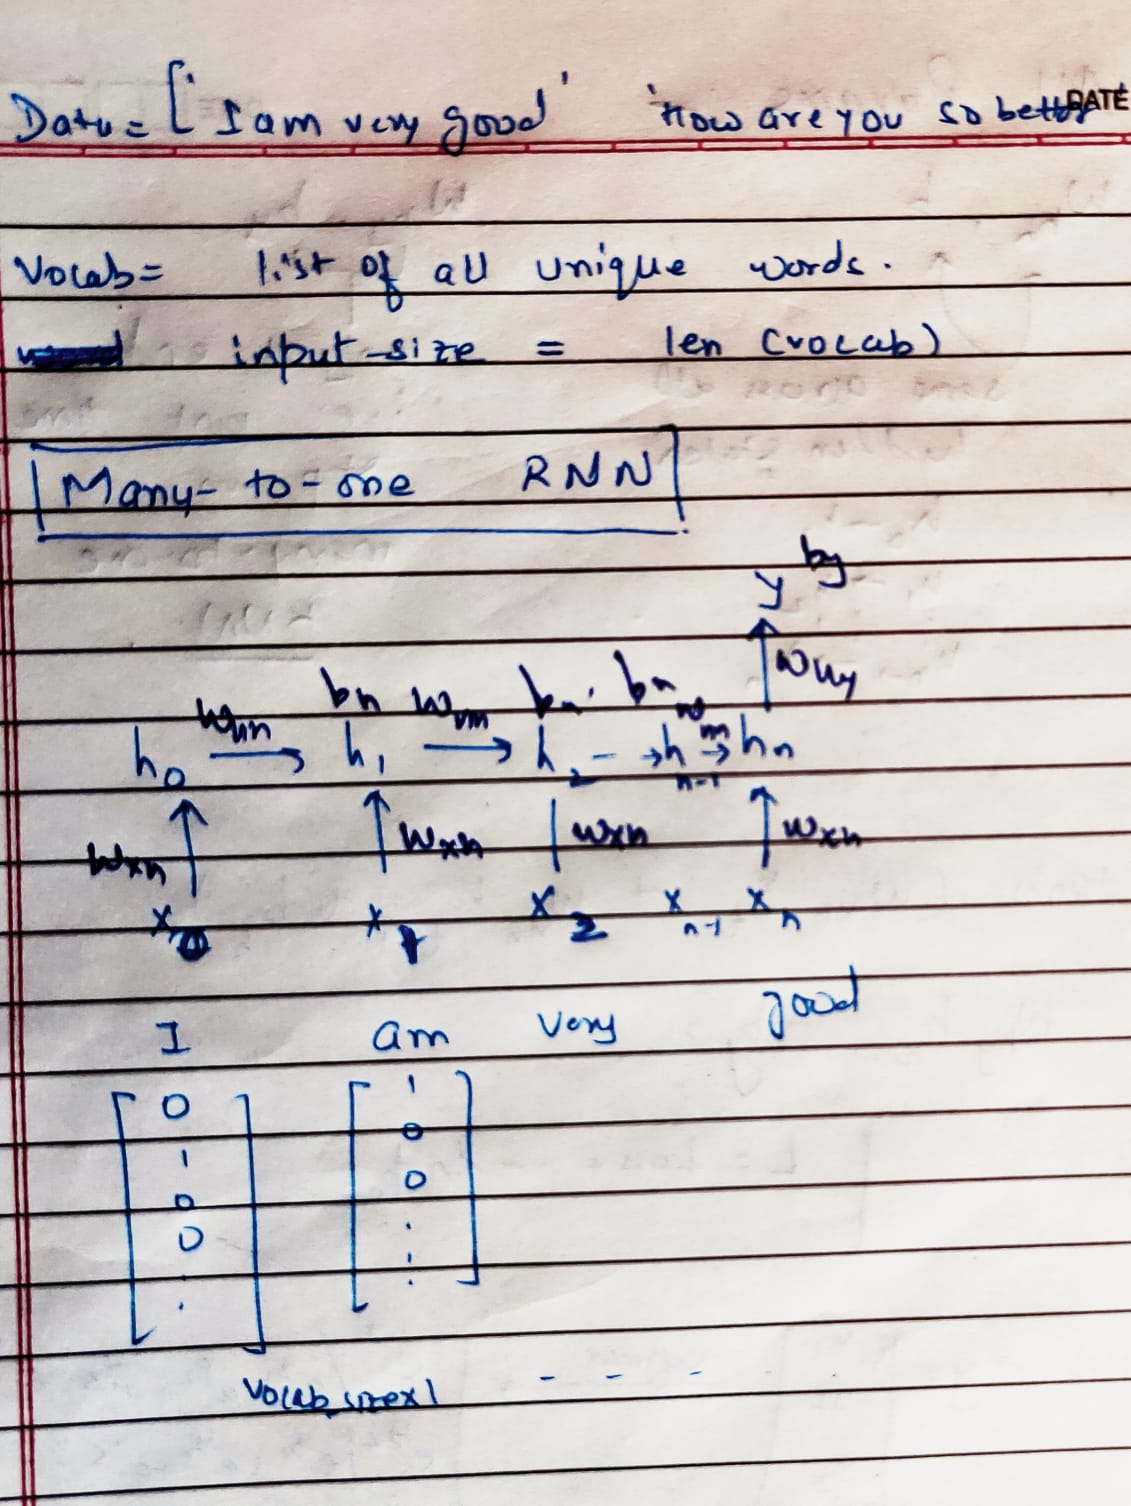 Data = [ ' I am very good ' 'How are you so better
DATE
Vocab = list of all unique words.
input-size = len (vocab)
Many-to-one RNN
y by
Why
bn bn
h0 h1 h2 - → h n-1 → hn
Wxh Wxh Wxh Wxh
x0 x1 x2 x n-1 x n
I am very good
0 1
1 0
0 0
0 .
. .
. .
vocab_size x 1 - - - -